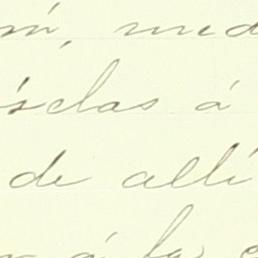 m, med
selas á
de allí
á la